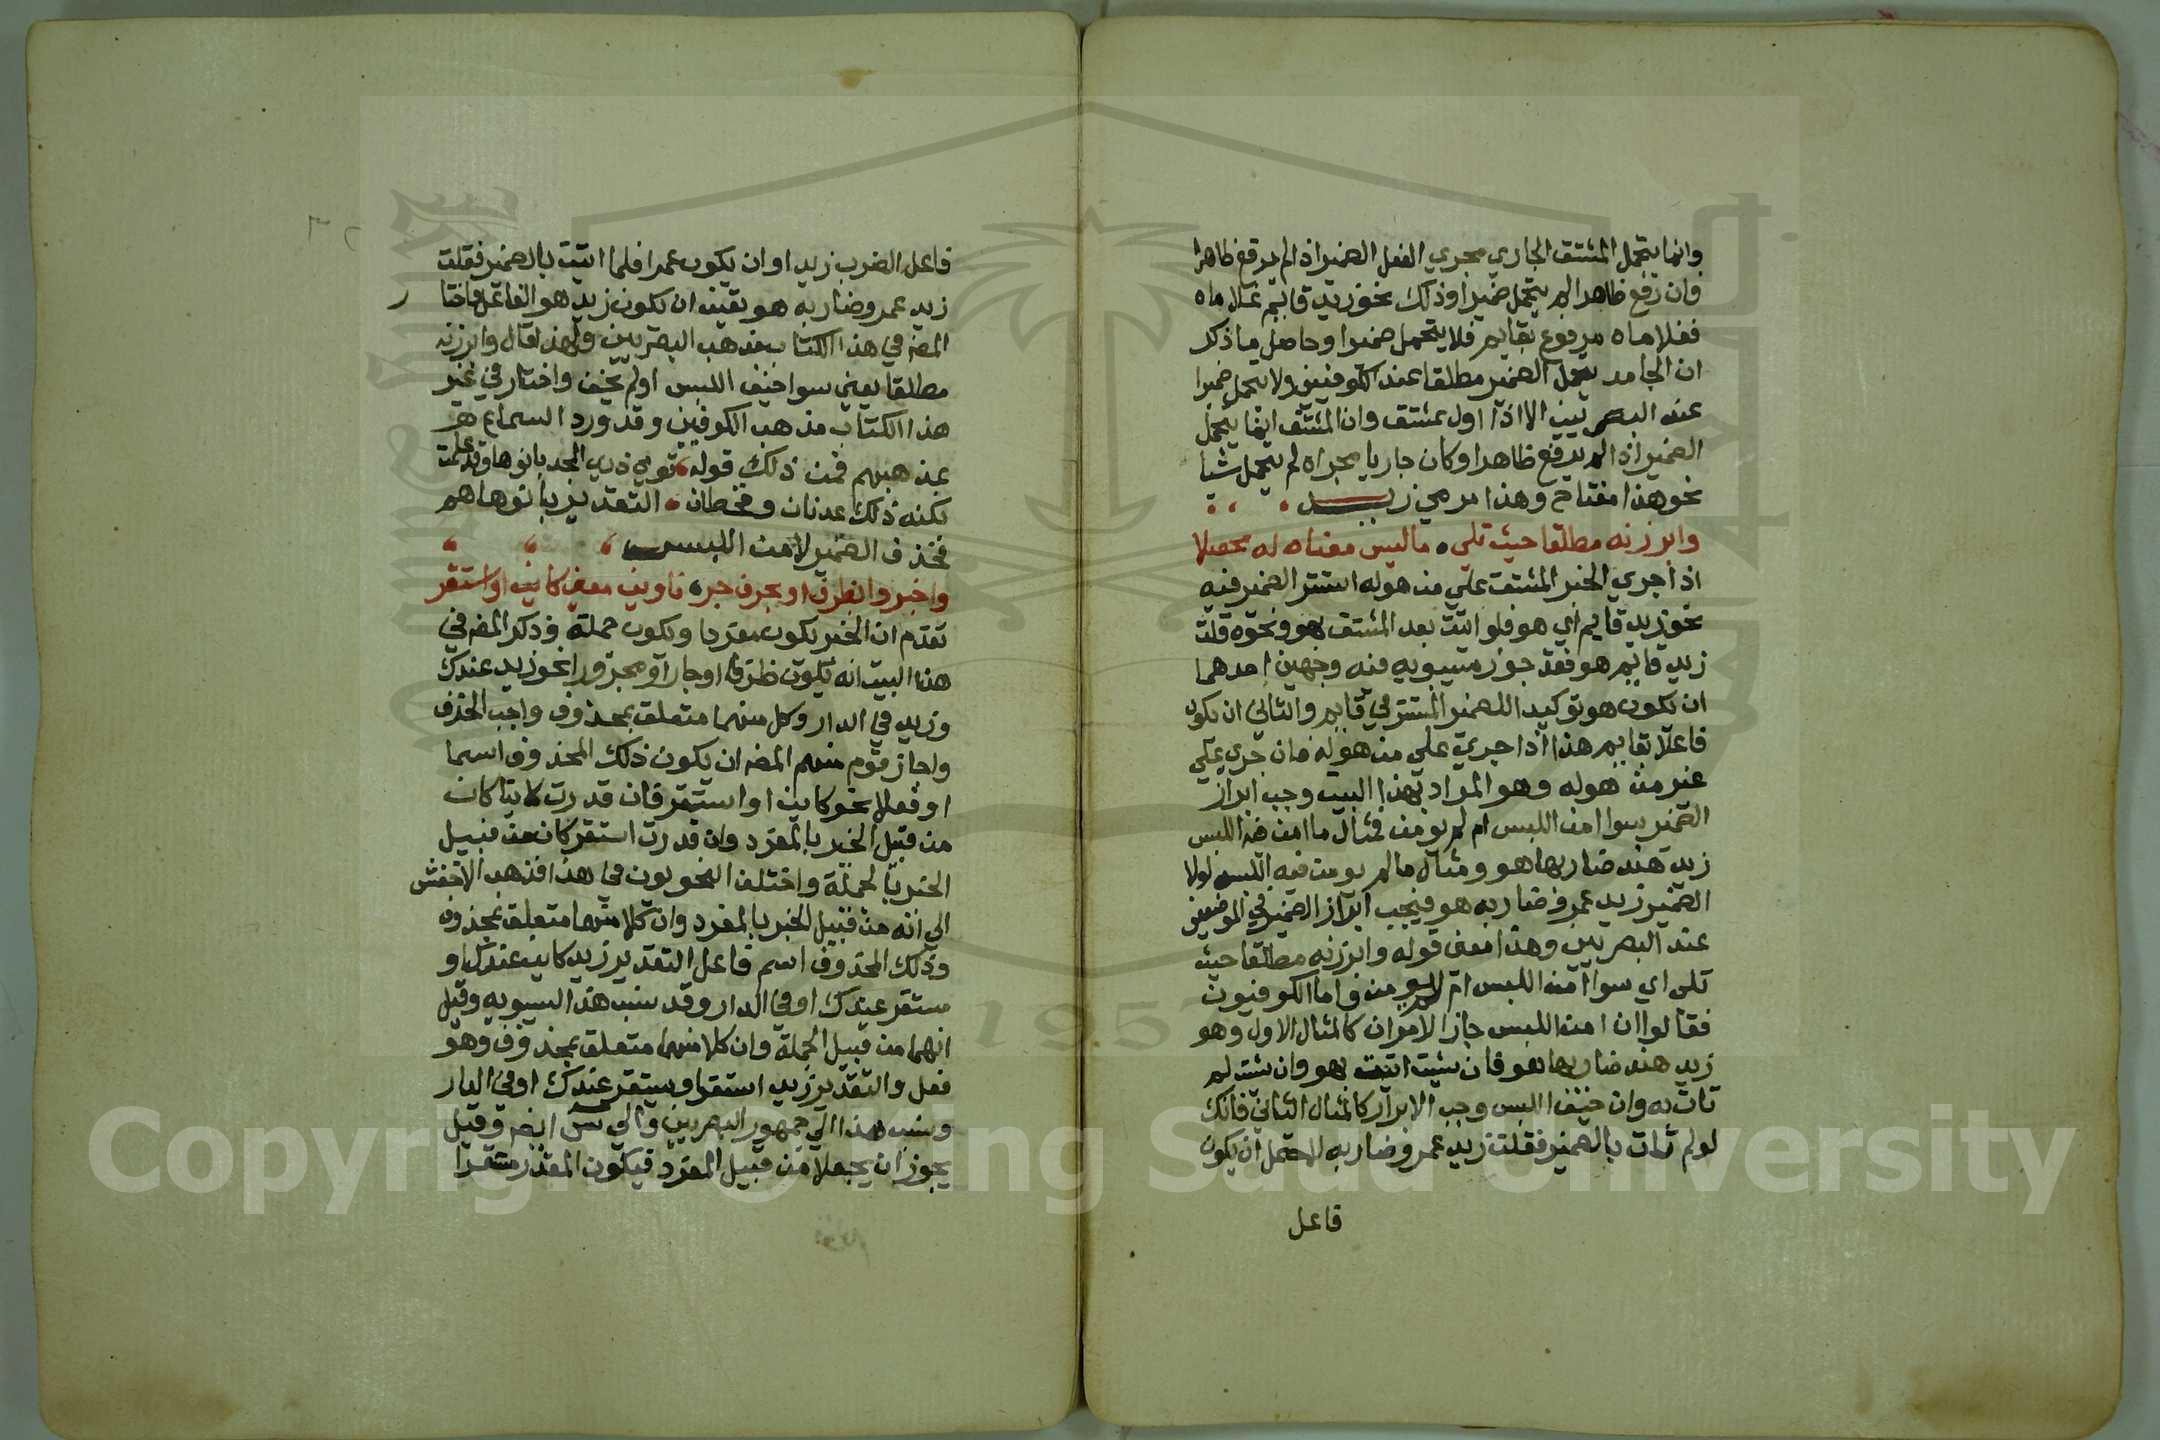 وانما يتحمل المشتق الجاري مجري الفعل الضمير اذا لم يرفع ظاهرا
فان رفع ظاهرا لم يتحمل ضميرا وذلك نحو زيد قايم غلاماه
فغلاماه مرفوع بقايم فلا يتحمل ضميرا وحاصل ما ذكر
ان الجامد يتحمل الضمير مطلقا عند الكوفيين ولا يتحمل ضميرا
عند البصريين الا اذا اول بمشتق وان المشتق انما يتحمل
الضمير اذا لم يرفع ظاهرا وكان جاريا مجراه لم يتحمل شيا
نحو هذا مفتاح وهذا مرمي زيد
وابرزنه مطلقا حيث تلي ه ما ليس معناه له محصلا
اذا جري الخبر المشتق علي من هو له استتر الضمير فيه
نحو زيد قايم اي هو فلو اتيت بعد المشتق بهو ونحوه قلت
زيد قايم هو فقد جوز سيبويه فيه وجهين احدهما
ان يكون هو توكيدا للضمير المستتر في قايم والثاني ان يكون
فاعلا بقايم هذا اذا جري علي من هو له فان جري علي
غير من هو له وهو المراد بهذا البيت وجب ابراز
الضمير سوا امن اللبس ام لم يومن فمثال ما امن فيه اللبس
زيد هند ضاربها هو ومثال ما لم يومن فيه اللبس لولا
الضمير زيد عمرو ضاربه هو فيجب ابراز الضمير في الموضعين
عند البصريين وهذا معني قوله وابرزنه مطلقا حيث
تلي اي سوا امن اللبس ام لم يومن واما الكوفيون
فقالوا ان امن اللبس جاز الامران كالمثال الاول وهو
زيد هند ضاربها هو فان شيت اتيت بهو وان شيت لم
تات به وان خيف اللبس وجب الابراز كالمثال الثاني فانك
لو لم تات بالضمير فقلت زيد عمرو ضاربه لاحتمل ان يكون
فاعل
فاعل الضرب زيد او ان يكون عمرا فلما اتيت بالضمير فقلت
زيد عمرو ضاربه هو تعين ان يكون زيد هو الفاعل واختا ر
المصـ في هذا الكتاب مذهب البصريين ولهذا قال وابرزنه
مطلقا يعني سوا خيف اللبس او لم يخف واختار في غير
هذا الكتاب مذهب الكوفيين وقد ورد السماع
بمذهبهم فمن ذلك قوله قومي ذري المجد بانوها وقد علمت
بكنه ذلك عدنان وقحطان التقدير بانوها هم
فحذف الضمير لامن اللبس
واخبروا بظرف او بحرف جر ه ناوين معني كاين او استقر
تقدم ان الخبر يكون مفردا ويكون جملة وذكر المصـ في
هذا البيت انه يكون ظرفا او جارا ومجرورا نحو زيد عندك
وزيد في الدار وكل منهما متعلق بمحذوف واجب الحذف
واجاز قوم منهم المصـ ان يكون ذلك المحذوف اسما
او فعلا نحو كاين او استقر فان قدرت كاينا كان
من قبيل الخبر بالمفرد وان قدرت استقر كان من قبيل
الخبر بالجملة واختلف النحويون في هذا فذهب الاخفش
الي انه من قبيل الخبر بالمفرد وان كلا منهما متعلق بمحذوف
وذلك المحذوف اسم فاعل التقدير زيد كاين عندك او
مستقر عندك او في الدار وقد نسب هذا لسيبويه وقيل
انهما من قبيل الجملة وان كلا منهما متعلق بمحذوف وهو
فعل والتقدير زيد استقر او يستقر عندك او في الدار
ونسب هذا الي جمهور البصريين والي س ايضـ وقيل
يجوز ان يجعلا من قبيل المفرد فيكون المقدر مستقرا
Copyright © King Saud University
1957